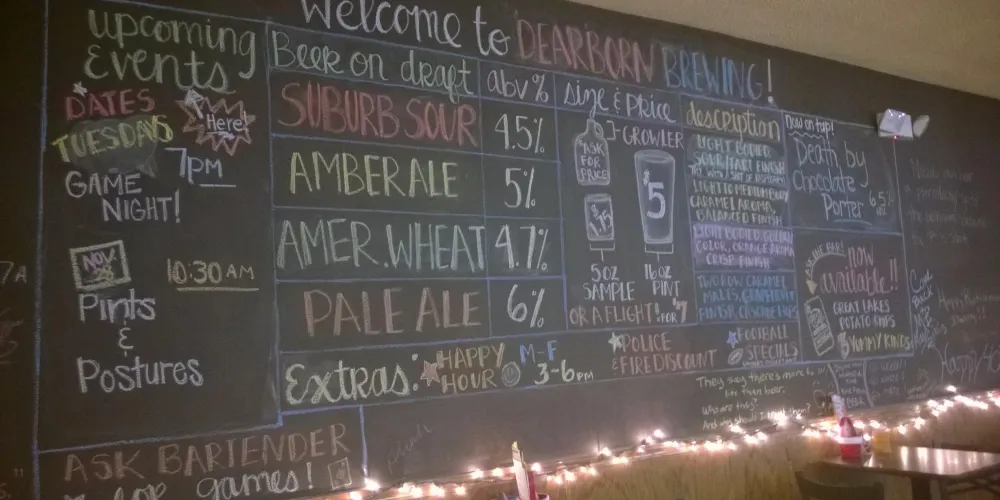 Welcome to DEARBORN BREWING!
upcoming
Events
DATES
TUESDAYS
Here!
7PM
GAME
NIGHT!
NOV
10:30 AM
Pints
&
Postures
ASK BARTENDER
for games!
Beer on draft
abv%
SUBURB SOUR
4.5%
AMBER ALE
5%
AMER. WHEAT
4.7%
PALE ALE
6%
size & price
GROWLER
ASK
FOR
PRICE
$5
5OZ
SAMPLE
16OZ
PINT
OR A FLIGHT! FOR $7
description
LIGHT BODIED
SOUR/TART FINISH
LIGHT TO MEDIUM BODY
CARAMEL AROMA
BALANCED FINISH
LIGHT BODIED, GOLDEN
COLOR, ORANGE AROMA
CRISP FINISH
TWO ROW CARAMEL
MALTS, GRAPEFRUIT
now on tap!
Death by
Chocolate
Porter
6.5%
now
available!!
GREAT LAKES
POTATO CHIPS
YUMMY KINDS
Extras:
HAPPY
HOUR
M-F
3-6PM
POLICE
& FIRE DISCOUNT
FOOTBALL
SPECIALS
They say there's more to
life than beer.
Who are they?
And why should I trust them?